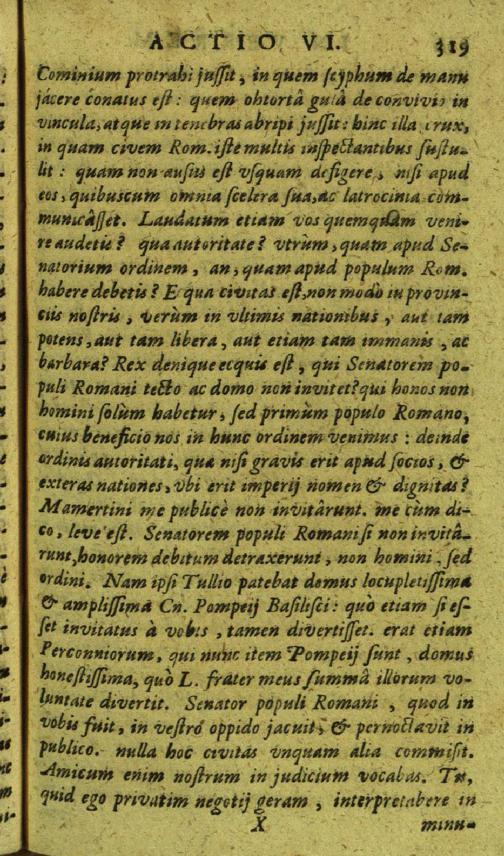 ACTIO VI. 319
Cominium protrahi jussit, in quem scyphum de manu
jácere conatus est: quem obtortâ gulâ de convivio in
vincula, atque in tenebras abripi jussit: hinc illa crux,
in quam civem Rom. iste multis inspectantibus sustu-
lit: quam non ausus est vsquam defigere, nisi apud
eos, quibuscum omnia scelera sua, ac latrocinia com-
municâsset. Laudatum etiam vos quemquam veni-
re audetis? qua autoritate? vtrum, quam apud Se-
natorium ordinem, an, quam apud populum Rom.
habere debetis? Equa civitas est, non modo in provin-
ciis nostris, verùm in vltimis nationibus, aut tam
potens, aut tam libera, aut etiam tam immanis, ac
barbara? Rex denique ecquis est, qui Senatorem po-
puli Romani tecto ac domo non invitet? qui honos non
homini solùm habetur, sed primùm populo Romano,
cuius beneficio nos in hunc ordinem venimus: deinde
ordinis autoritati, quæ nisi gravis erit apud socios, &
exteras nationes, vbi erit imperij nomen & dignitas?
Mamertini me publicè non invitârunt. me cùm di-
co, leve est. Senatorem populi Romani si non invitâ-
runt, honorem debitum detraxerunt, non homini, sed
ordini. Nam ipsi Tullio patebat domus locupletissima
& amplissima Cn. Pompeij Basilisci: quò etiam si es-
set invitatus à vobis, tamen divertisset. erat etiam
Perconniorum, qui nunc item Pompeij sunt, domus
honestissima, quò L. frater meus summâ illorum vo-
luntate divertit. Senator populi Romani, quod in
vobis fuit, in vestro oppido jacuit, & pernoctavit in
publico. nulla hoc civitas vnquam alia commisit.
Amicum enim nostrum in judicium vocabas. Tu,
quid ego privatim negotij geram, interpretabere in
X minu-